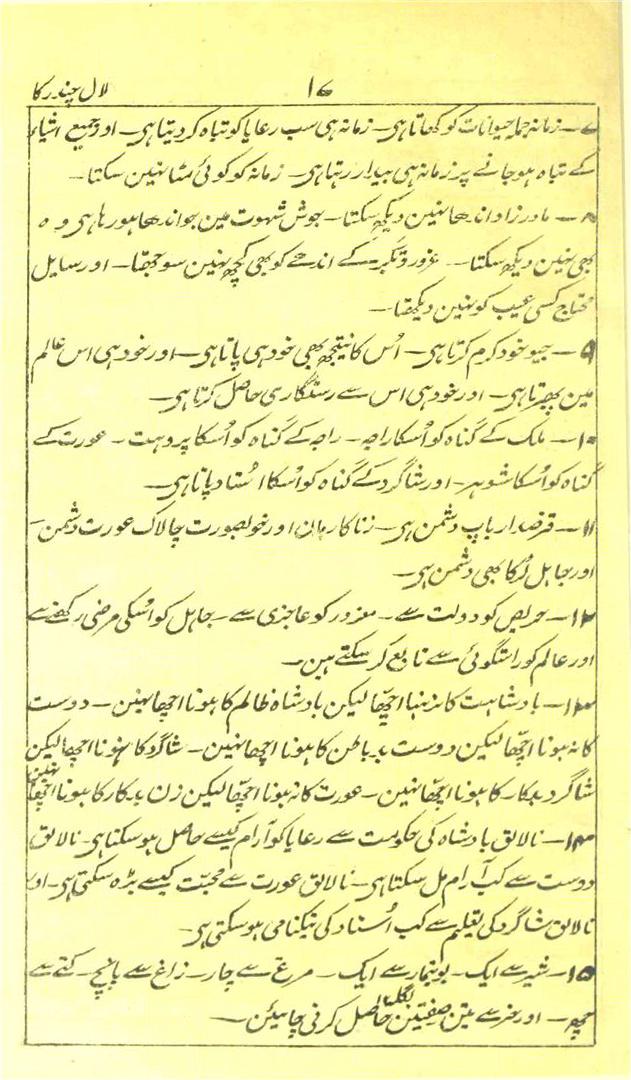 لال چندرکا ۱۶
۷۔ زمانہ جملہ حیوانات کو کھاتا ہی۔ زمانہ ہی سب رعایا کو تباہ کر دیتا ہی۔ اور جمیع اشیاء
کے تباہ ہو جانے پر زمانہ ہی بیدار رہتا ہی۔ زمانہ کو کوئی مٹا نہین سکتا۔
۸۔ مادر زاد اندھا نہین دیکھ سکتا۔ جوش شہوت مین جو اندھا ہو رہا ہی وہ
بھی نہین دیکھ سکتا۔ غرور و تکبر کے اندھے کو بھی کچھ نہین سوجھتا۔ اور سایل
محتاج کسی عیب کو نہین دیکھتا۔
۹۔ جیو خود کرم کرتا ہی۔ اُس کا نتیجہ بھی خود ہی پاتا ہی۔ اور خود ہی اس عالم
مین پھرتا ہی۔ اور خود ہی اس سے رستگاری حاصل کرتا ہی۔
۱۰۔ ملک کے گناہ کو اُسکا راجہ۔ راجہ کے گناہ کو اُسکا پروہت۔ عورت کے
گناہ کو اُسکا شوہر۔ اور شاگرد کے گناہ کو اُسکا اُستاد پاتا ہی۔
۱۱۔ قرضدار باپ دشمن ہی۔ زناکار مان اور خوبصورت چالاک عورت دشمن۔
اور جاہل لڑکا بھی دشمن ہی۔
۱۲۔ حریص کو دولت سے۔ مغرور کو عاجزی سے۔ جاہل کو اُسکی مرضی رکھنے سے
اور عالم کو راستگوئی سے تابع کر سکتے ہین۔
۱۳۔ بادشاہت کا نہ رہنا اچھّا لیکن بادشاہ ظالم کا ہونا اچھا نہین۔ دوست
کا نہ ہونا اچّھا لیکن دوست بد باطن کا ہونا اچھا نہین۔ شاگرد کا نہونا اچھا لیکن
شاگرد بدکار کا ہونا اچّھا نہین۔ عورت کا نہ ہونا اچھّا لیکن زن بدکار کا ہونا اچھّا نہین
۱۴۔ نالایق بادشاہ کی حکومت سے رعایا کو آرام کیسے حاصل ہو سکتا ہی۔ نالایق
دوست سے کب آرام مل سکتا ہی۔ نالایق عورت سے محبّت کیسے بڑہ سکتی ہی۔ اور
نالایق شاگرد کی تعلیم سے کب اُستاد کی نیکنامی ہو سکتی ہی۔
۱۵۔ شیر سے ایک۔ بوتیمار سے ایک۔ مرغ سے چار۔ زاغ سے پانچ۔ کتے سے
چھہ۔ اور خر سے تین صفتین حاصل کرنی چاہیئن۔